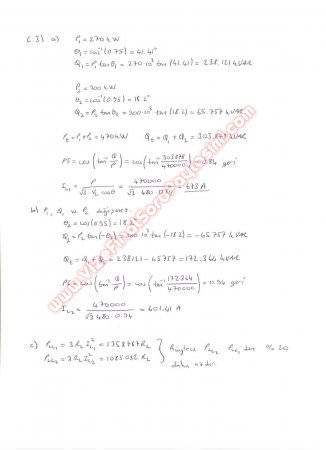 C.3) a) P₁ = 270 kW
θ₁ = cos⁻¹(0.75) = 41.41°
Q₁ = P₁ tan θ₁ = 270·10³ tan(41.41) = 238.121 kVAR
P₂ = 200 kW
θ₂ = cos⁻¹(0.95) = 18.2°
Q₂ = P₂ tan θ₂ = 200·10³ tan(18.2) = 65.757 kVAR
Pₜ = P₁ + P₂ = 470 kW Qₜ = Q₁ + Q₂ = 303.878 kVAR
PF = cos(tan⁻¹ Q/P) = cos(tan⁻¹ 303878/470000) = 0.84 geri
I_L1 = P/(√3 V_L cosθ) = 470000/(√3 480 0.84) = 673 A
b) P₁, Q₁ ve P₂ değişmez.
θ₂ = cos(0.95) = 18.2
Q₂ = P₂ tan(-θ₂) = 200·10³ tan(-18.2) = -65.757 kVAR
Qₜ = Q₁ + Q₂ = 238121 - 65757 = 172.364 kVAR
PF = cos(tan⁻¹ Q/P) = cos(tan⁻¹ 172364/470000) = 0.94 geri
I_L2 = 470000/(√3 480 0.94) = 601.41 A
c) = 3 R_L I²_L1 = 1358787 R_L
= 3 R_L I²_L2 = 1085082 R_L
% 20
daha azdır.
www.VizeFinalSoruBankasi.com